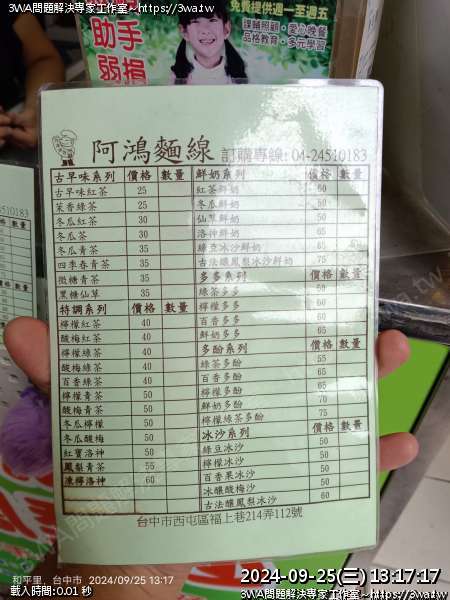 3WA問題解決專家工作室~https://3wa.tw
免費提供週一至週五
課輔照顧・愛心晚餐
品格教育・多元學習
助手
弱損
阿鴻麵線 訂購專線: 04-24510183
古早味系列 價格 數量
古早味紅茶 25
茉香綠茶 25
冬瓜紅茶 30
冬瓜茶 30
冬瓜青茶 35
四季春青茶 35
微糖青茶 35
黑糖仙草 35
特調系列 價格 數量
檸檬紅茶 40
酸梅紅茶 40
檸檬綠茶 40
酸梅綠茶 40
百香綠茶 40
檸檬青茶 50
酸梅青茶 50
冬瓜檸檬 50
冬瓜酸梅 50
紅寶洛神 50
鳳梨青茶 55
凍檸洛神 60
鮮奶系列 價格 數量
紅茶鮮奶 60
冬瓜鮮奶
仙草鮮奶
洛神鮮奶 65
綠豆冰沙鮮奶
古法釀鳳梨冰沙鮮奶 75
多多系列 價格 數量
綠茶多多 50
檸檬多多 60
百香多多 60
鮮奶多多 65
多酚系列 價格 數量
綠茶多酚 55
百香多酚 65
檸檬多酚 65
鮮奶多酚 70
檸檬綠茶多酚 75
冰沙系列 價格 數量
綠豆冰沙 50
檸檬冰沙 50
百香果冰沙 50
冰釀酸梅沙 50
古法釀鳳梨冰沙 60
台中市西屯區福上巷214弄112號
和平里, 台中市 2024/09/25 13:17
載入時間:0.01 秒
2024-09-25(三) 13:17:17
3WA問題解決專家工作室~https://3wa.tw